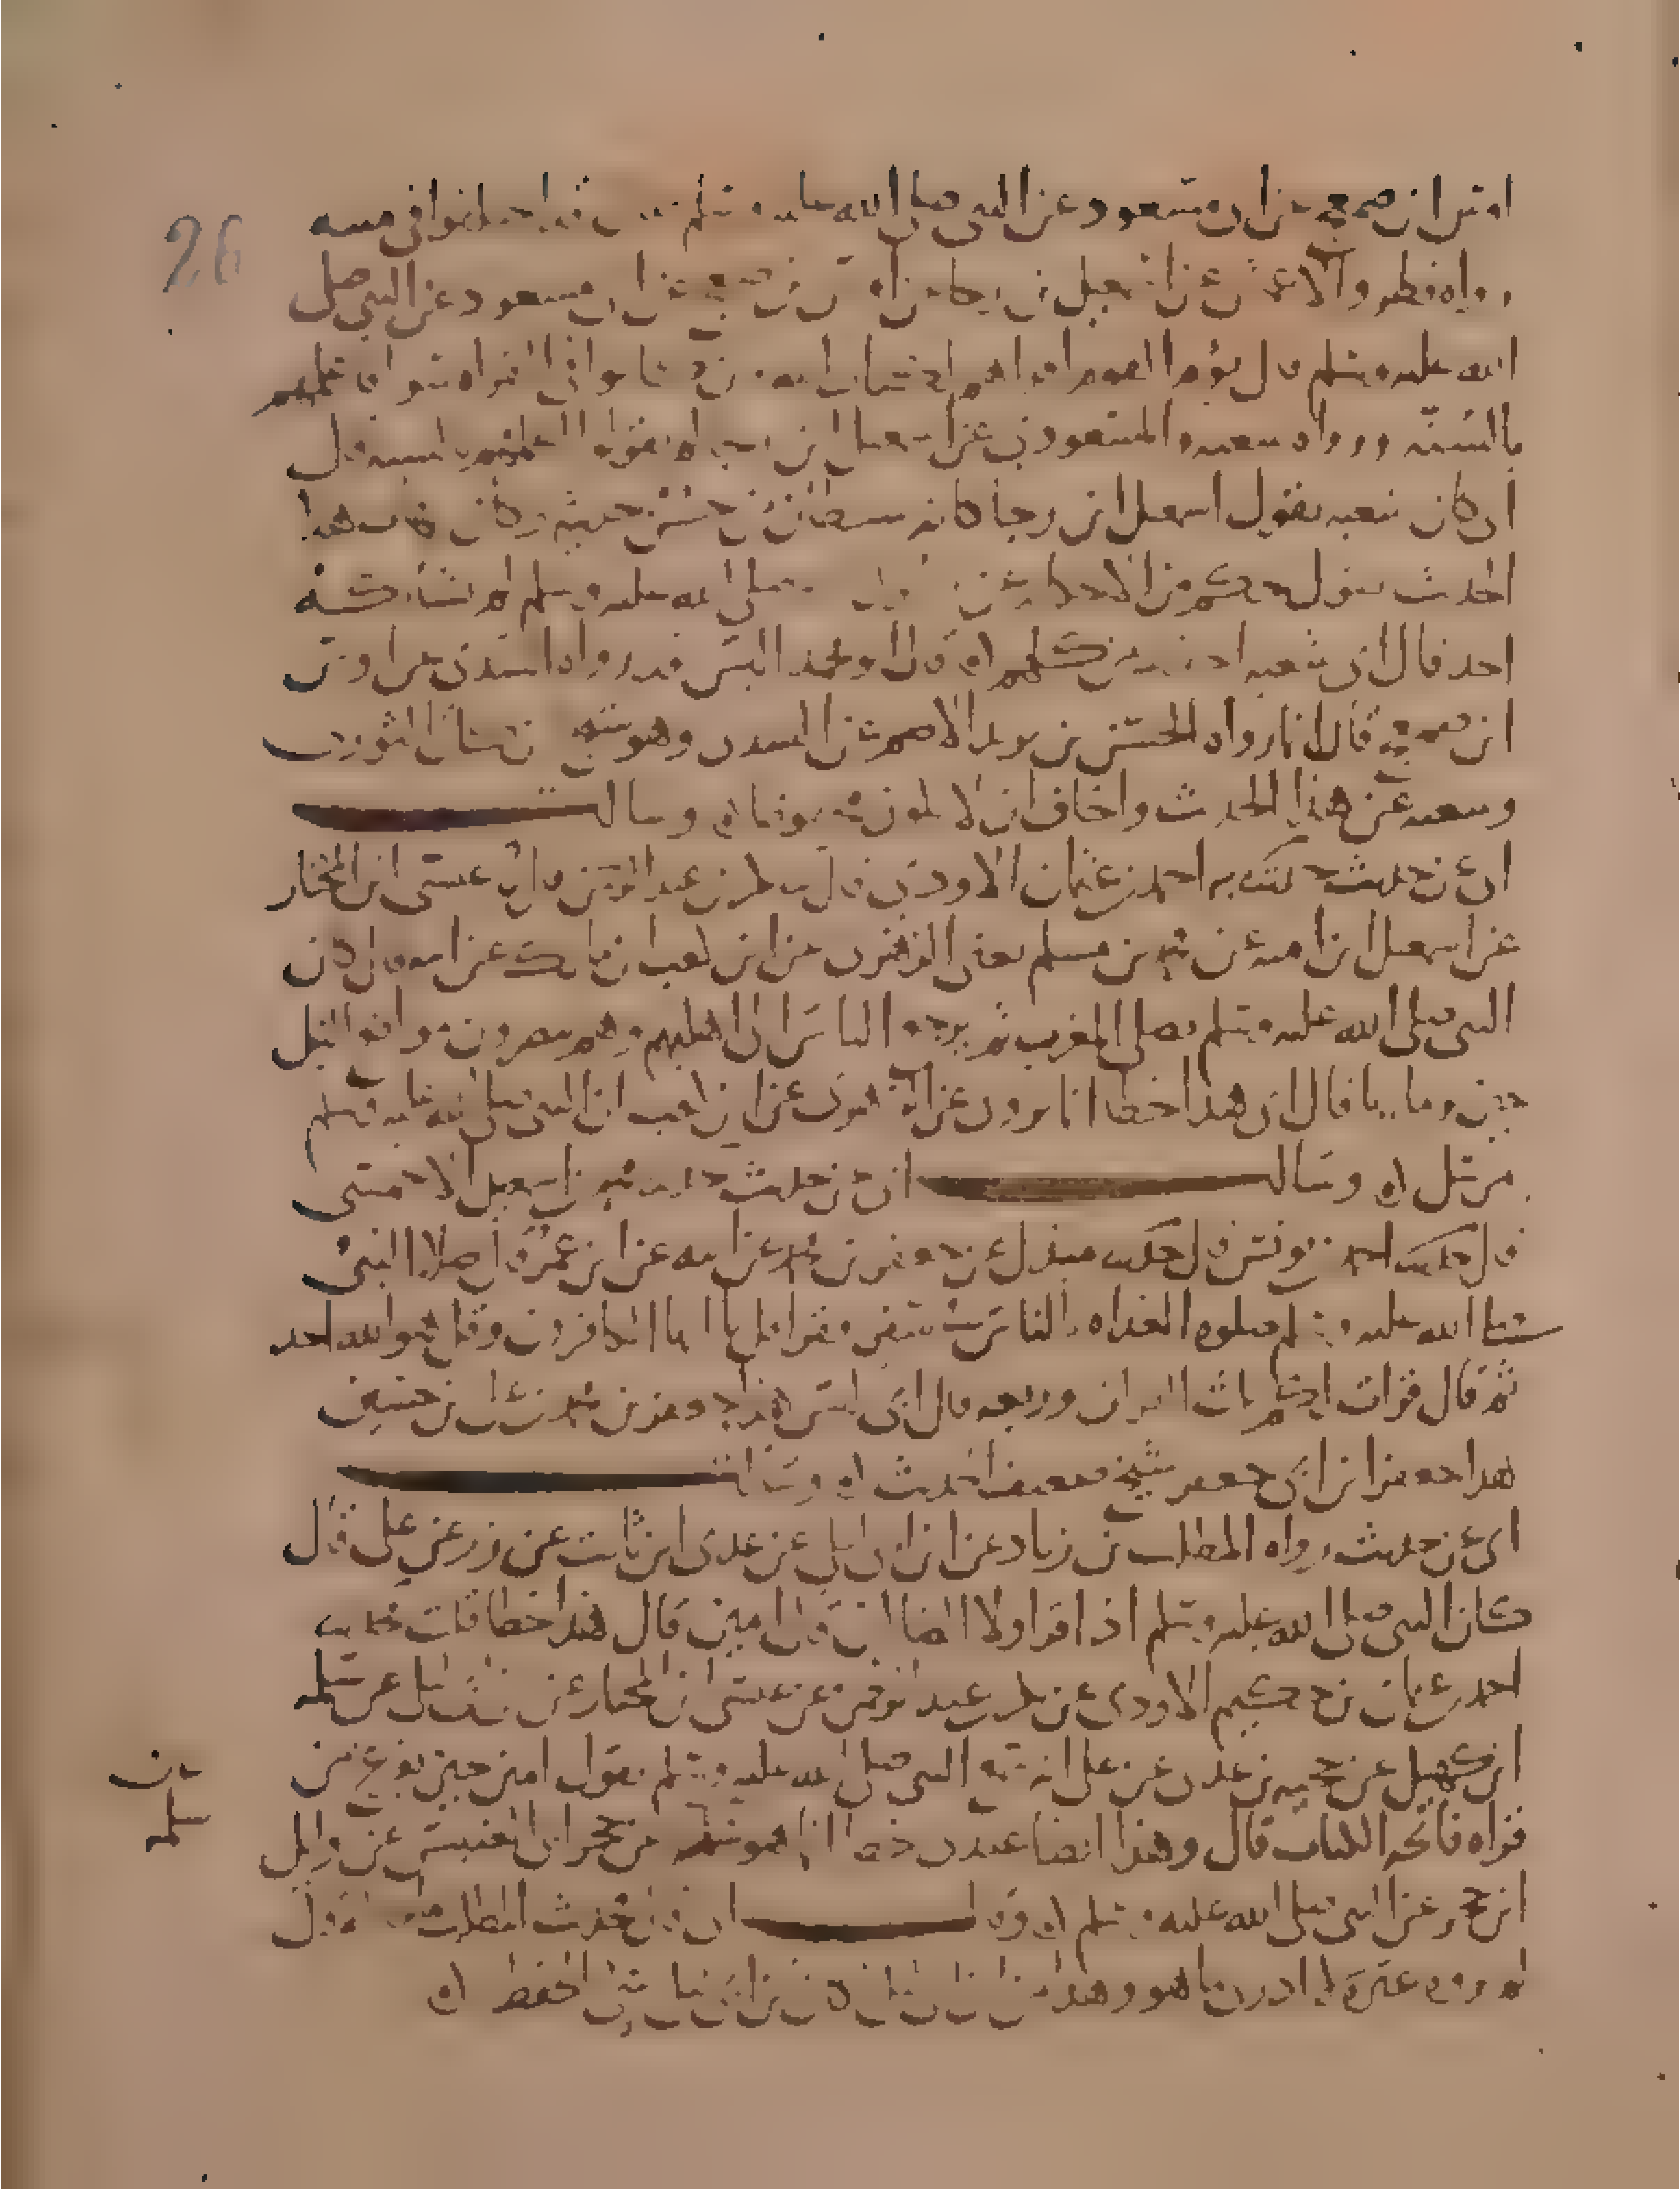 26
اوس بن ضمعج عن ابن مسعود عن النبي صلى الله عليه وسلم
رواه فطر والاعمش عن اسمعيل بن رجا عن اوس بن ضمعج عن ابي مسعود عن النبي صلى
الله عليه وسلم قال يؤم القوم اقراهم لكتاب الله فان كانوا في القراه سوا فاعلمهم
بالسنه ورواه شعبه والمسعودي عن اسمعيل ابن رجا لم يقولوا اعلمهم بالسنه قال
ابي كان شعبه يقول اسمعيل ابن رجا كانه شيطان من حسن حديثه وكان يهاب هذا
الحديث يقول حكم من الاحكام عن رسول الله صلى الله عليه وسلم لم يشاركه
احد فقال ابي شعبه احفظ من كلهم قال ابو محمد اليس قد رواه السدي عن اوس
ابن ضمعج قال انما رواه الحسن بن يزيد الاصم عن السدي وهو شيخ اين كان الثوري
وشعبه عن هذا الحديث واخاف ان لا يكون محفوظا وسالت
ابي عن حديث كتب به احمد بن عثمان الاودي قال بكر بن عبد الرحمن قال عيسى ابن المختار
عن اسمعيل ابن اميه عن محمد بن مسلم يعني الزهري عن ابن كعب بن مالك عن ابيه قال كان
النبي صلى الله عليه وسلم يصلي المغرب ثم يرجع الناس الى اهليهم وهم يبصرون مواقع النبل
حين يرمى بها فقال ابي هذا خطا انما يروى عن الزهري عن ابن كعب ان النبي صلى الله عليه وسلم
مرسل وسالت ابي عن حديث حدثنا محمد بن اسمعيل الاحمسي
قال حدثنا احمد بن يونس قال حدثنا مندل عن جعفر بن محمد عن ابيه عن ابن عمر قال صلا النبي
صلى الله عليه وسلم صلوه الغداه بالناس في سفر وقرا قل يا ايها الكافرون وقل هو الله احد
ثم قال قرات لكم ثلث القران وربعه قال ابي ليس هذا جعفر بن محمد بن علي بن حسين
هذا جعفر ابن ابي جعفر شيخ ضعيف الحديث وسالت
ابي عن حديث رواه المطلب بن زياد عن ابن ابي ليلى عن عدي ابن ثابت عن زر عن علي قال
كان النبي صلى الله عليه وسلم اذا قرا ولا الضالين قال امين قال هذا خطا قلت فحديث
احمد بن عثمان بن حكيم الاودي عن بكر بن عبد الرحمن عن عيسى بن المختار عن ابن ابي ليلى عن سلمه
ابن كهيل عن حجيه بن عدي عن علي انه سمع النبي صلى الله عليه وسلم يقول امين حين يفرغ من
قراه فاتحه الكتاب قال وهذا ايضا عندي خطا انما هو سلمه عن حجر ابي العنبس عن وايل
ابن حجر عن النبي صلى الله عليه وسلم وقلت لابي فحديث المطلب ما حاله قال
لم يروه غيره لا ادري ما هو وهذا من ابن ابي ليلى كان ابن ابي ليلى سيئ الحفظ
سلمه